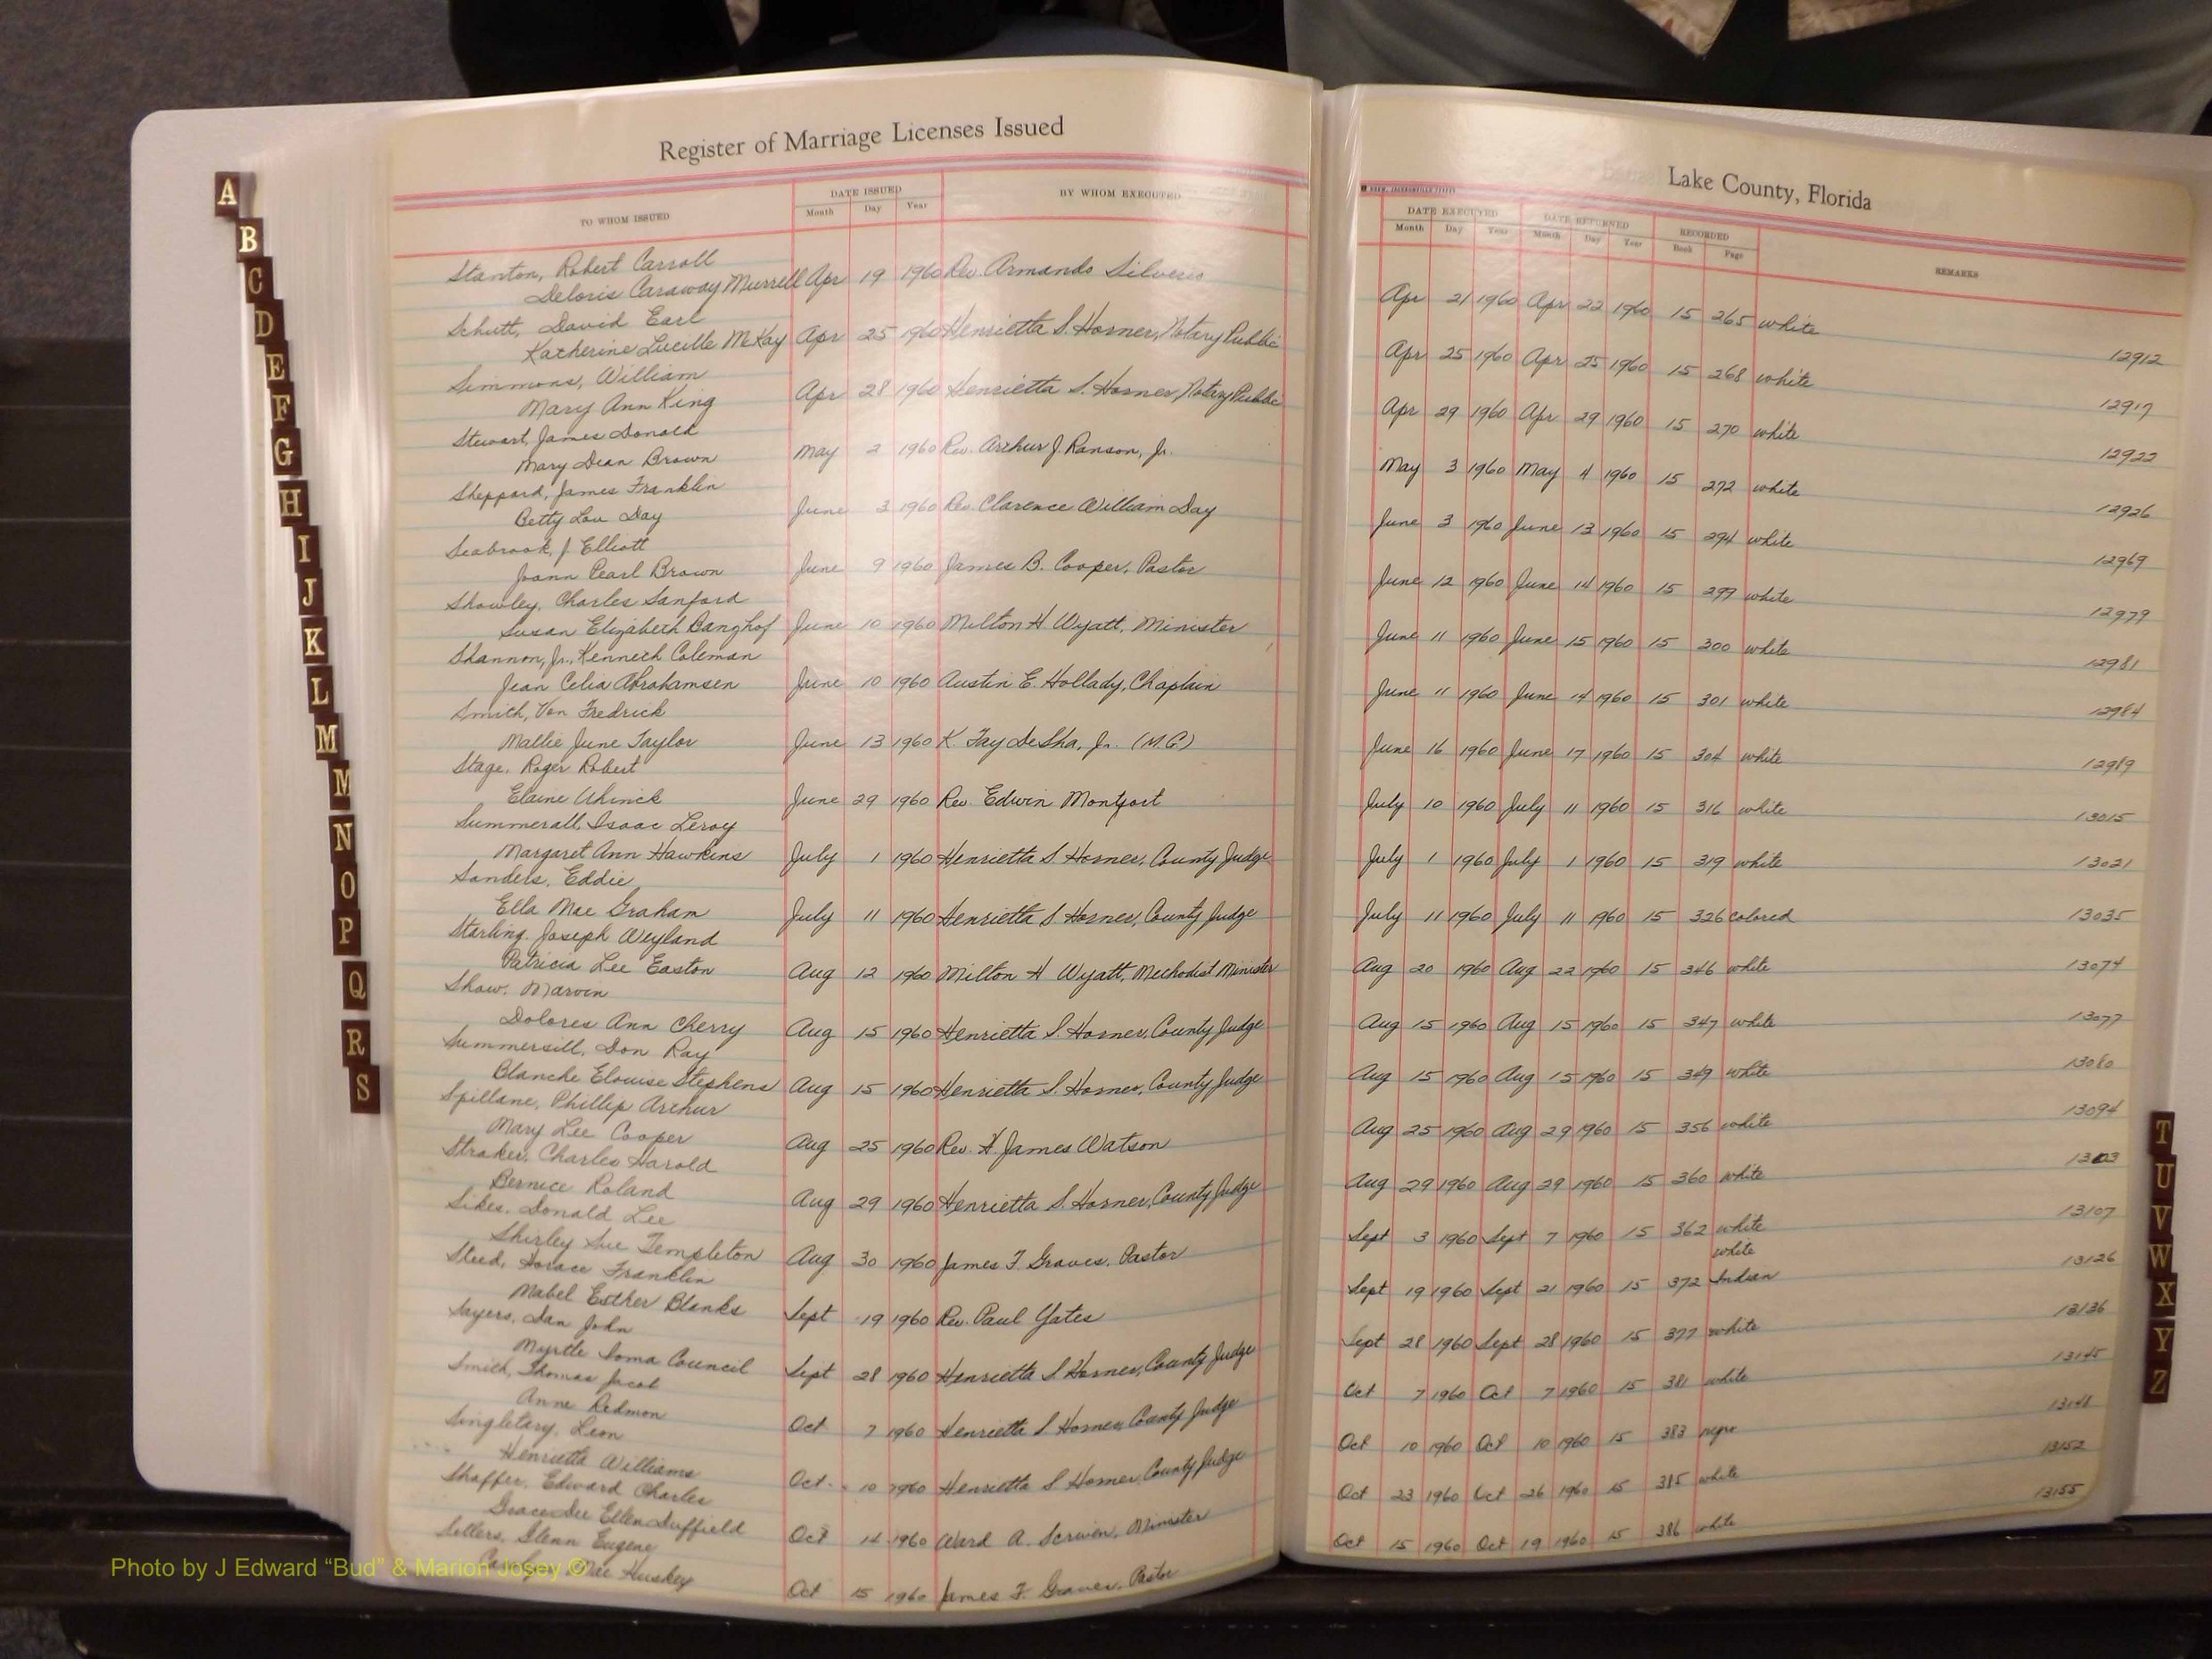 Register of Marriage Licenses Issued
TO WHOM ISSUED
DATE ISSUED
Month Day Year
BY WHOM EXECUTED
Stanton, Robert Carroll
Deloris Caraway Murrell Apr 19 1960 Rev. Armando
Schutt, David Earl
Katherine Lucille McKay Apr 25 1960 Henrietta S. Horner, Notary Public
Simmons, William
Mary Ann King Apr 28 1960 Henrietta S. Horner, Notary Public
Stewart, James Donald
Mary Dean Brown May 2 1960 Rev. Arthur J. Ranson, Jr.
Sheppard, James Franklin
Betty Lou Day June 3 1960 Rev. Clarence William Day
Seabrook, J Elliott
Joann Pearl Brown June 9 1960 James B. Cooper, Pastor
Showley, Charles Sanford
Susan Elizabeth Banghof June 10 1960 Milton H Wyatt, Minister
Shannon, Jr., Kenneth Coleman
Jean Celia Abrahamsen June 10 1960 Austin E. Hollady, Chaplain
Smith, Von Fredrick
Mallie June Taylor June 13 1960 K. Fay DeSha, Jr. (M.G.)
Stage, Roger Robert
Elaine June 29 1960 Rev. Edwin Montfort
Summerall, Isaac Leroy
Margaret Ann Hawkins July 1 1960 Henrietta S. Horner, County Judge
Sanders, Eddie
Ella Mae Graham July 11 1960 Henrietta S. Horner, County Judge
Starling, Joseph Weyland
Patricia Lee Easton Aug 12 1960 Milton H Wyatt, Methodist Minister
Shaw, Marvin
Dolores Ann Cherry Aug 15 1960 Henrietta S. Horner, County Judge
Summersill, Don Ray
Blanche Elouise Stephens Aug 15 1960 Henrietta S. Horner, County Judge
Spillane, Phillip Arthur
Mary Lee Cooper Aug 25 1960 Rev. H. James Watson
Straker, Charles Harold
Bernice Roland Aug 29 1960 Henrietta S. Horner, County Judge
Sikes, Donald Lee
Shirley Sue Templeton Aug 30 1960 James F. Graves, Pastor
Steed, Horace Franklin
Mabel Esther Blanks Sept 19 1960 Rev. Paul Yates
Sayers, Dan John
Myrtle Council Sept 28 1960 Henrietta S Horner, County Judge
Smith, Thomas Jacob
Anne Redmon Oct 7 1960 Henrietta S Horner County Judge
Singletary, Leon
Henrietta Williams Oct 10 1960 Henrietta S Horner County Judge
Shaffer, Edward Charles
Grace Ellen Duffield Oct 14 1960 Ward A. Scriven, Minister
Sellers, Glenn Eugene
Mae Huskey Oct 15 1960 James F. Graves, Pastor
Lake County, Florida
DATE EXECUTED
Month Day Year
DATE RETURNED
Month Day Year
RECORDED
Book Page
REMARKS
Apr 21 1960 Apr 22 1960 15 265 white 12912
Apr 25 1960 Apr 25 1960 15 268 white 12917
Apr 29 1960 Apr 29 1960 15 270 white 12922
May 3 1960 May 4 1960 15 272 white 12926
June 3 1960 June 13 1960 15 294 white 12969
June 12 1960 June 14 1960 15 299 white 12979
June 11 1960 June 15 1960 15 300 white 12981
June 11 1960 June 14 1960 15 301 white 12984
June 16 1960 June 17 1960 15 304 white 12989
July 10 1960 July 11 1960 15 316 white 13015
July 1 1960 July 1 1960 15 319 white 13021
July 11 1960 July 11 1960 15 326 colored 13035
Aug 20 1960 Aug 22 1960 15 346 white 13074
Aug 15 1960 Aug 15 1960 15 347 white 13077
Aug 15 1960 Aug 15 1960 15 349 white 13080
Aug 25 1960 Aug 29 1960 15 356 white 13094
Aug 29 1960 Aug 29 1960 15 360 white 13103
Sept 3 1960 Sept 7 1960 15 362 white 13107
white
Sept 19 1960 Sept 21 1960 15 372 Indian 13126
Sept 28 1960 Sept 28 1960 15 377 white 13136
Oct 7 1960 Oct 7 1960 15 381 white 13145
Oct 10 1960 Oct 10 1960 15 383 negro 13148
Oct 23 1960 Oct 26 1960 15 385 white 13152
Oct 15 1960 Oct 19 1960 15 386 white 13155
A
B
C
D
E
F
G
H
I
J
K
L
M
M
N
O
P
Q
R
S
T
U
V
W
X
Y
Z
Photo by J Edward “Bud” & Marion Josey ©